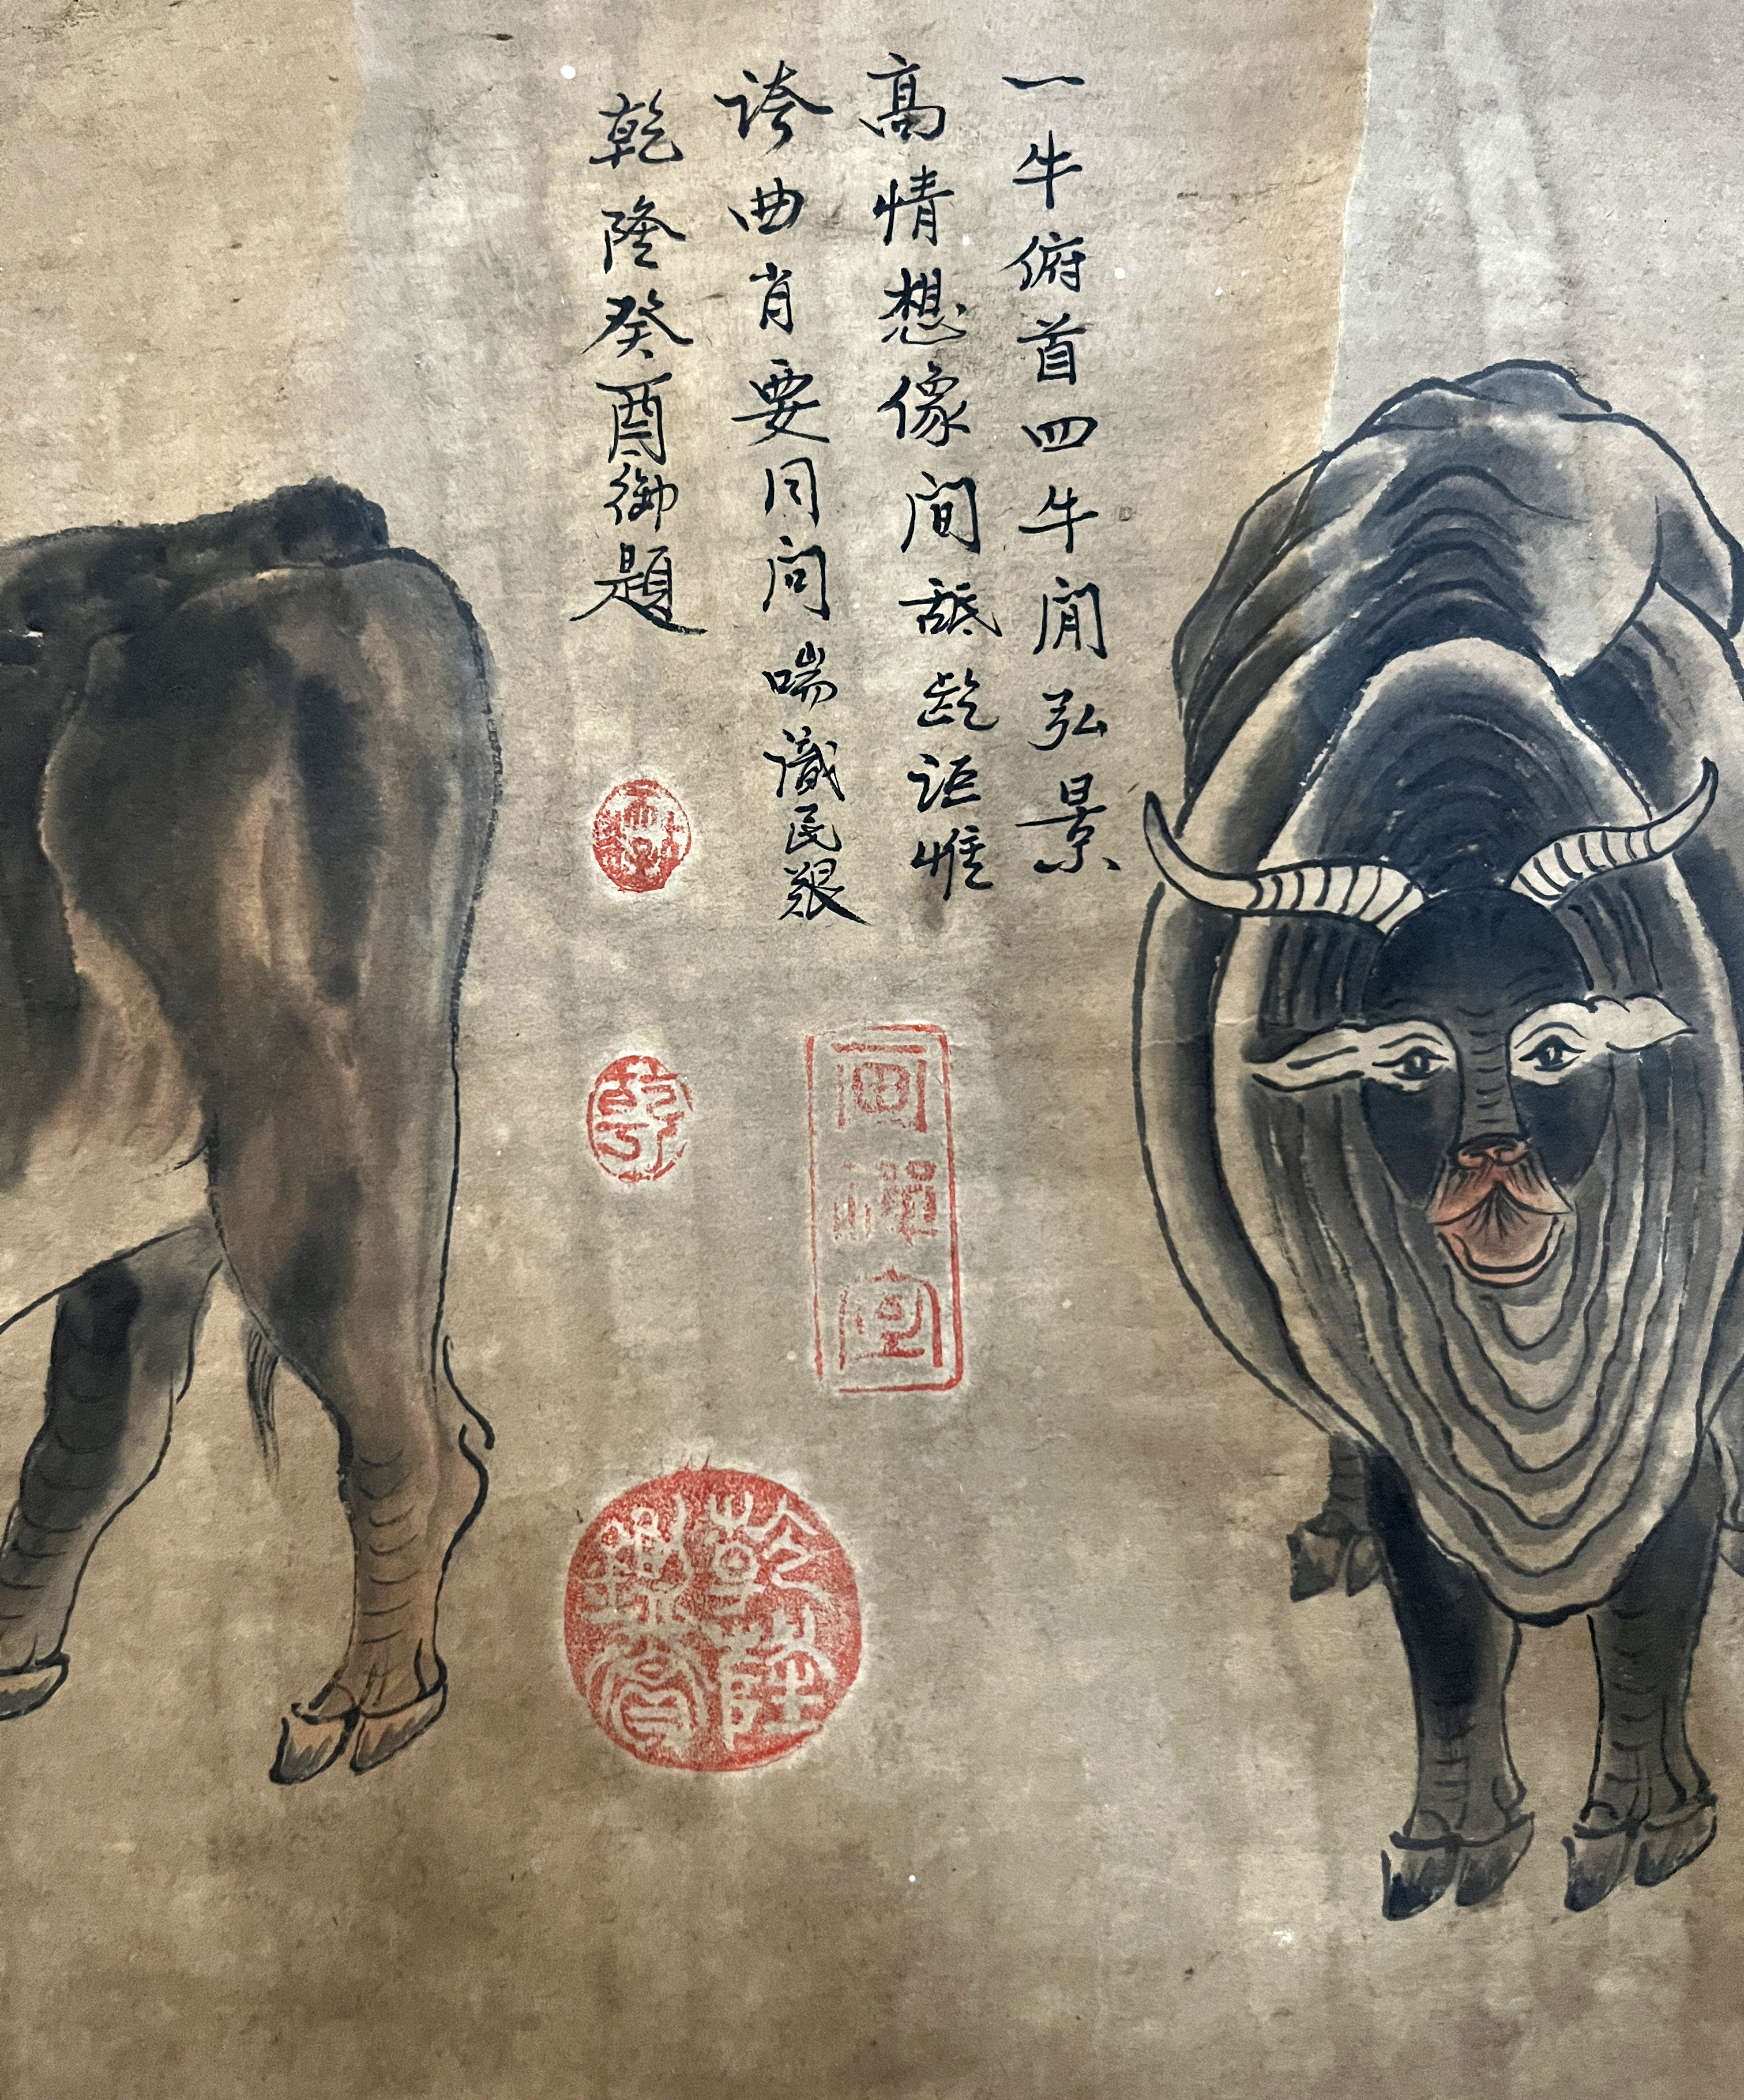 一牛俯首四牛閒弘景
高情想像間舐齕詎惟
誇曲肖要因問喘識民艱
乾隆癸酉御題
畫禪室
乾隆鑑賞